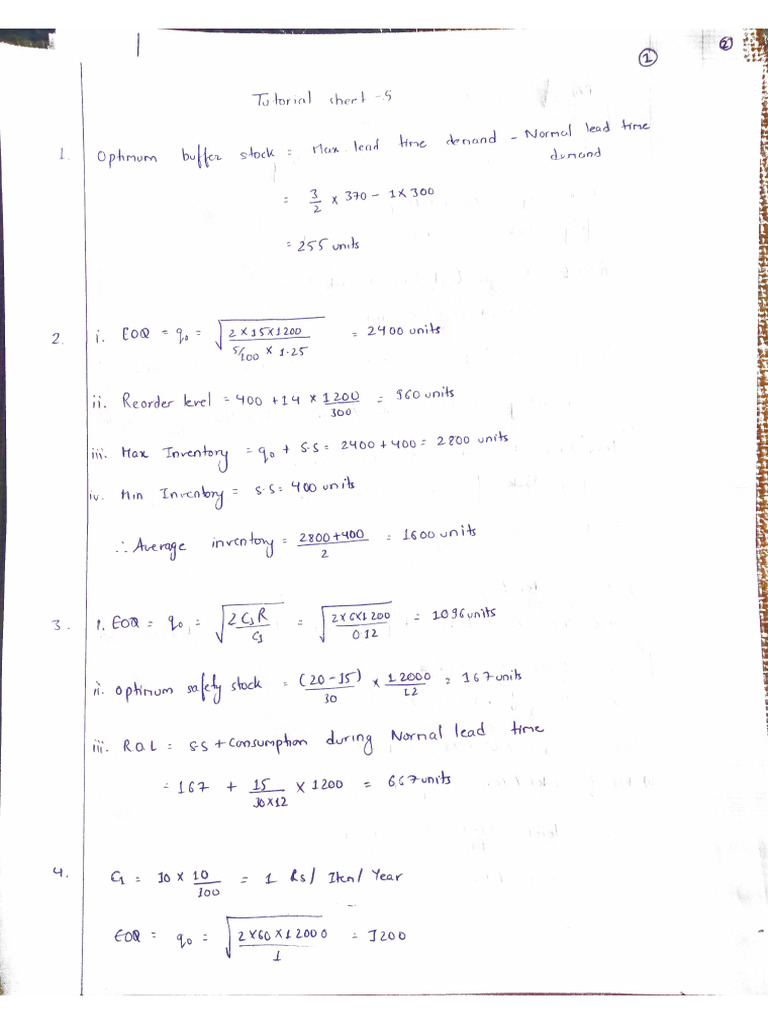 ① ②
Tutorial sheet -5
1. Optimum buffer stock = Max lead time demand - Normal lead time demand
= 3/2 × 370 - 1×300
= 255 units
2. i. EOQ = q₀ = √(2×15×1200 / 5/100 × 1.25) = 2400 units
ii. Reorder level = 400 + 14 × 1200/300 = 960 units
iii. Max Inventory = q₀ + S.S = 2400 + 400 = 2800 units
iv. Min Inventory = S.S = 400 units
∴ Average inventory = 2800+400/2 = 1600 units
3. i. EOQ = q₀ = √(2C₃R/C₁) = √(2×6×1200/0.12) = 1096 units
ii. Optimum safety stock = (20-15)/30 × 12000/12 = 167 units
iii. R.O.L = S.S + Consumption during Normal lead time
= 167 + 15/30×12 × 1200 = 667 units
4. C₁ = 10 × 10/100 = 1 Rs/ Item/ Year
EOQ = q₀ = √(2×60×12000/1) = 1200